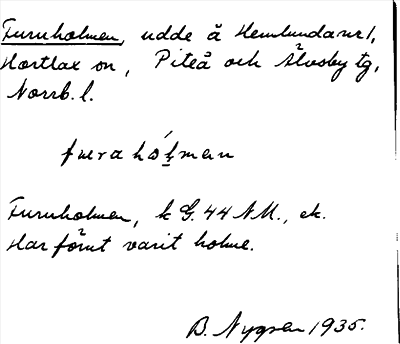 Furuholmen, udde å Hemlundavr 1,
Hortlax sn, Piteå och Älvsby tg,
Norrb. l.
furahólman
Furuholmen, k G. 44 NM., ek.
Har förut varit holme.
B. Nygren 1935.